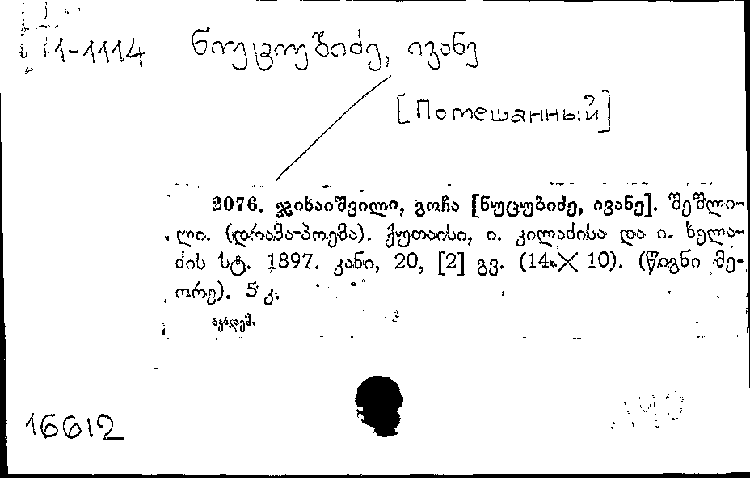 11-1114 ნუცუბიძე, ივანე
[Помешанный]
2076. ჯიხაიშვილი, გოჩა [ნუცუბიძე, ივანე]. შეშლი-
ლი. (დრამა-პოემა). ქუთაისი, ი. კილაძისა და ი. ხელა-
ძის სტ. 1897. კანი, 20, [2] გვ. (14 X 10). (წიგნი მე-
ორე). 5 კ.
აკადემ.
16612